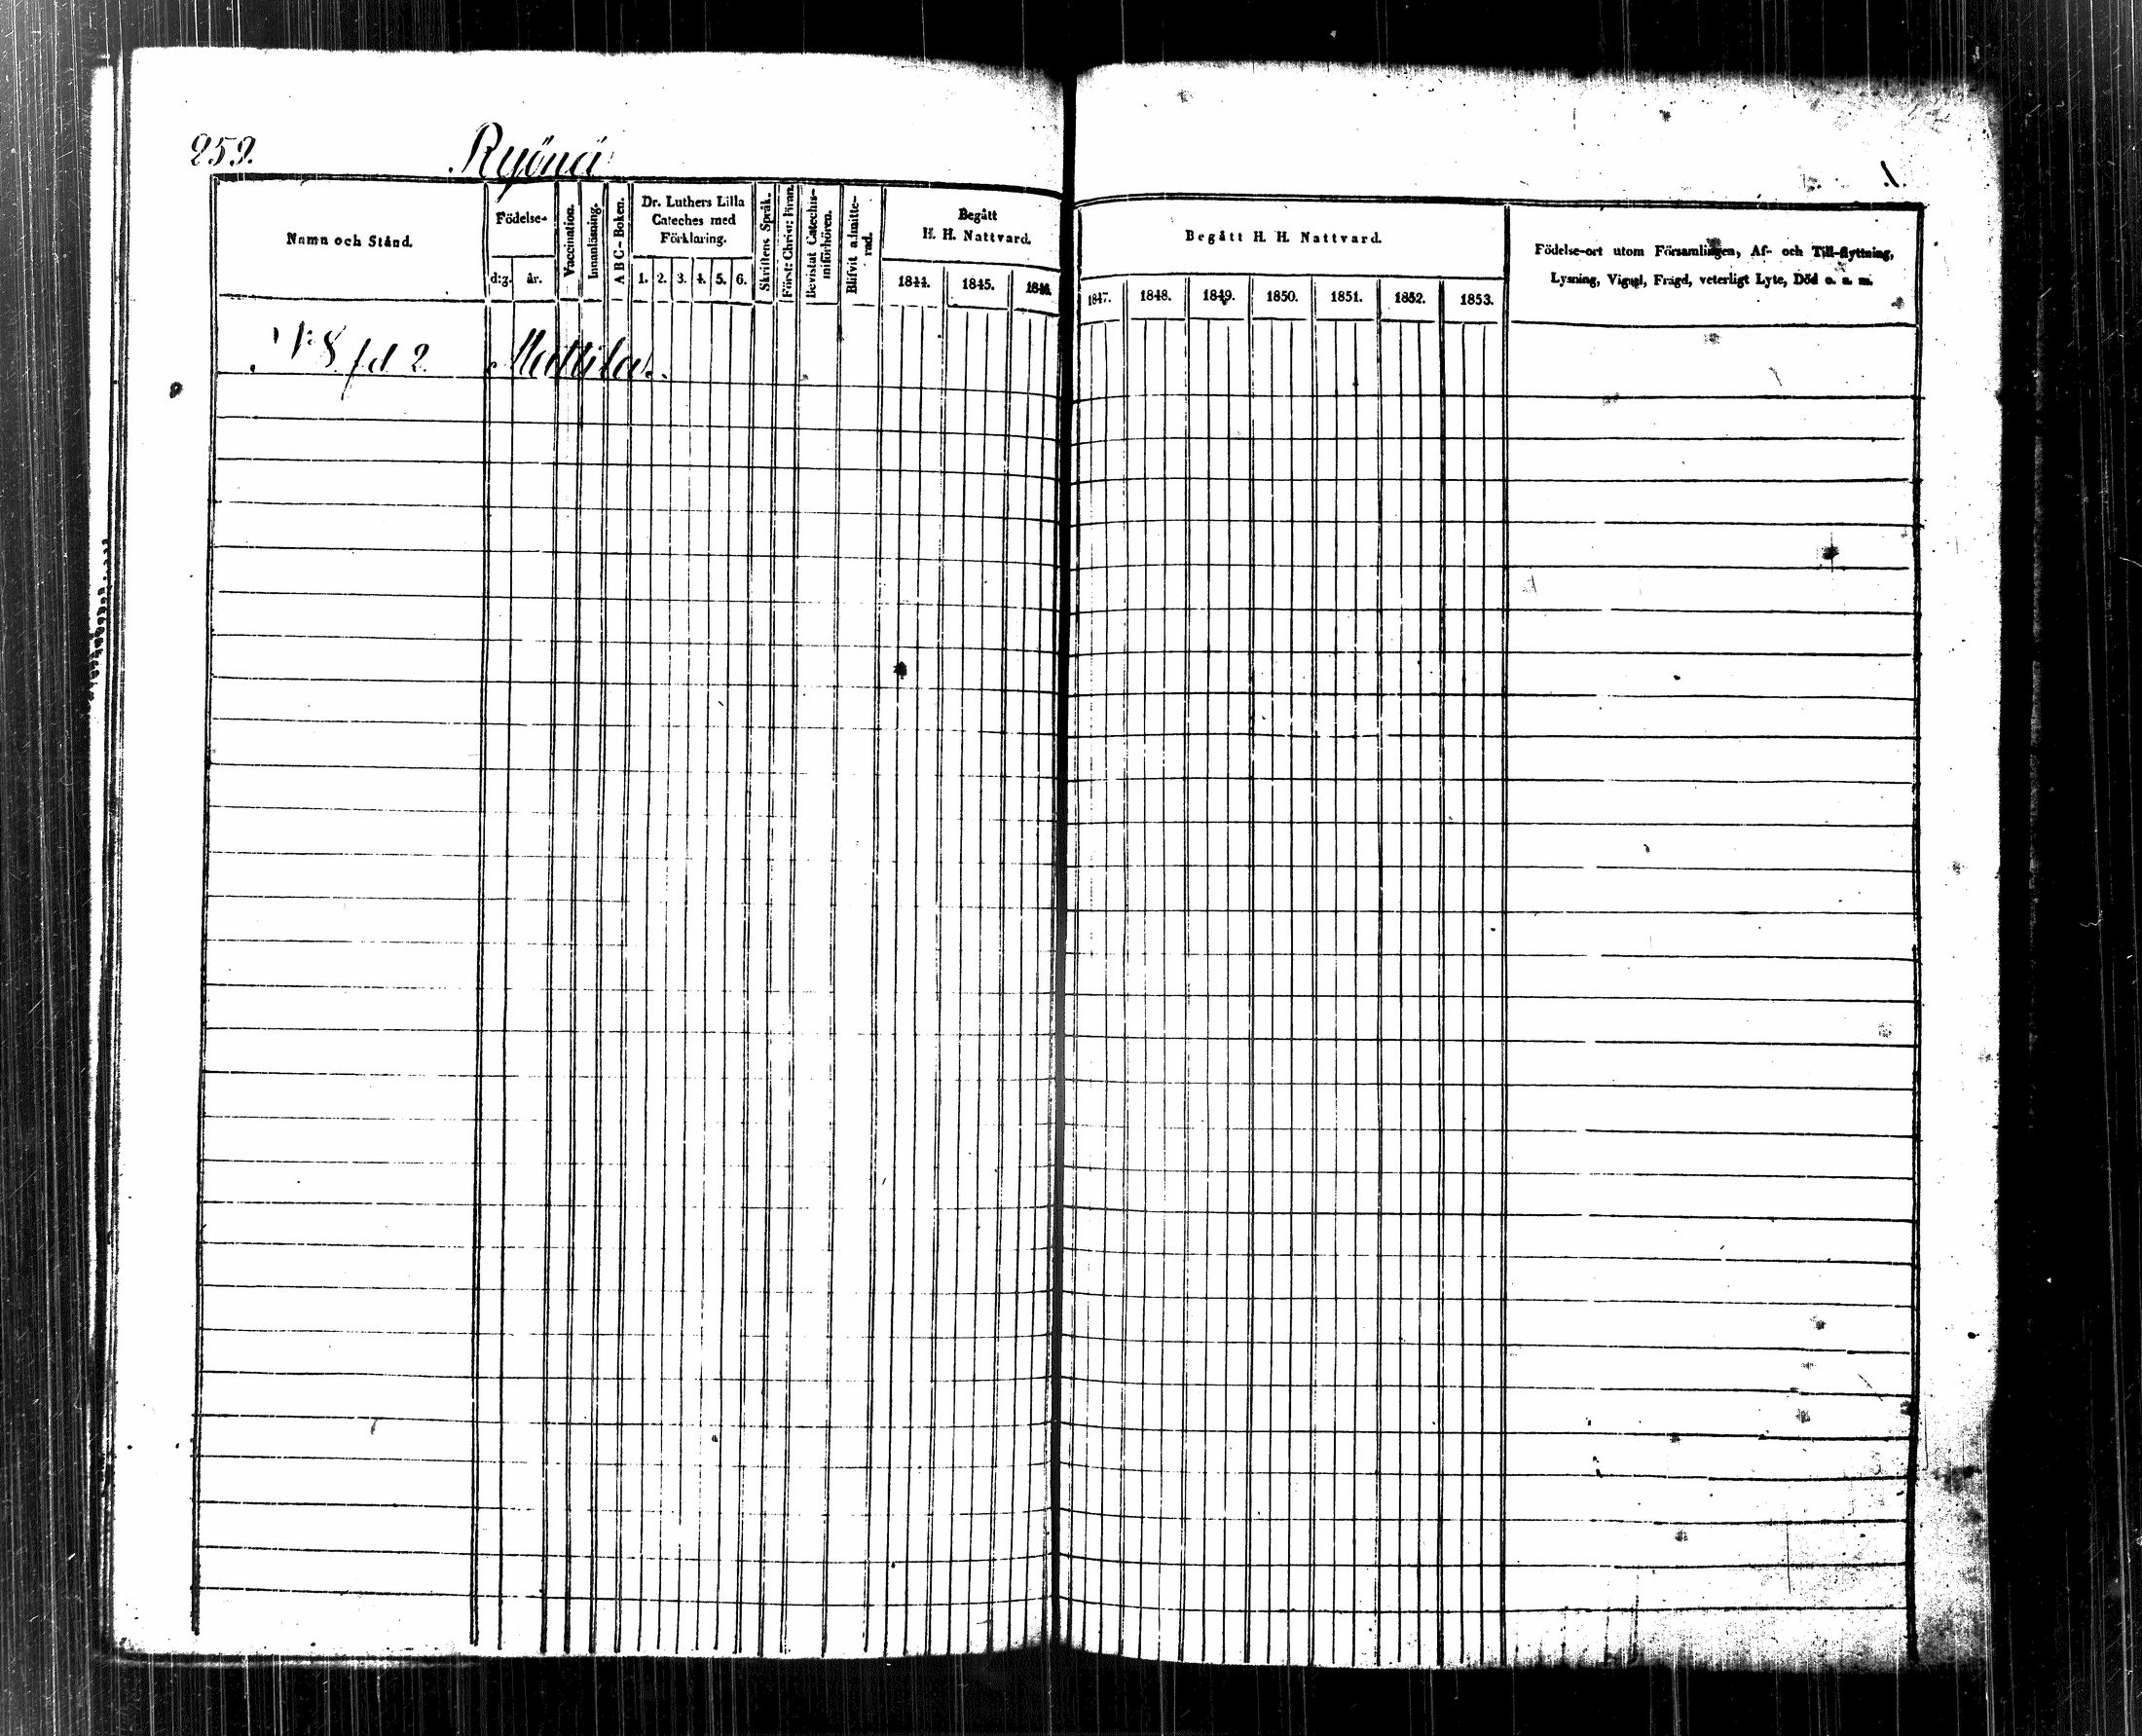 259. Ryönä
1.
Namn och Stånd.
Födelse-
d:g. år.
Vaccination.
Innanläsning.
A B C-Boken.
Dr. Luthers Lilla
Cateches med
Förklaring.
1. 2. 3. 4. 5. 6.
Skriftens Språk.
Först: Christ: Kran.
Bevistat Catechis-
miförhören.
Blifvit admitte-
rad.
Begått
H. H. Nattvard.
1844. 1845. 1846.
Begått H. H. Nattvard.
1847. 1848. 1849. 1850. 1851. 1852. 1853.
Födelse-ort utom Församlingen, Af- och Till-flyttning,
Lysning, Vigsel, Frägd, veterligt Lyte, Död o. a. m.
N:8 fd 2. Mattila.